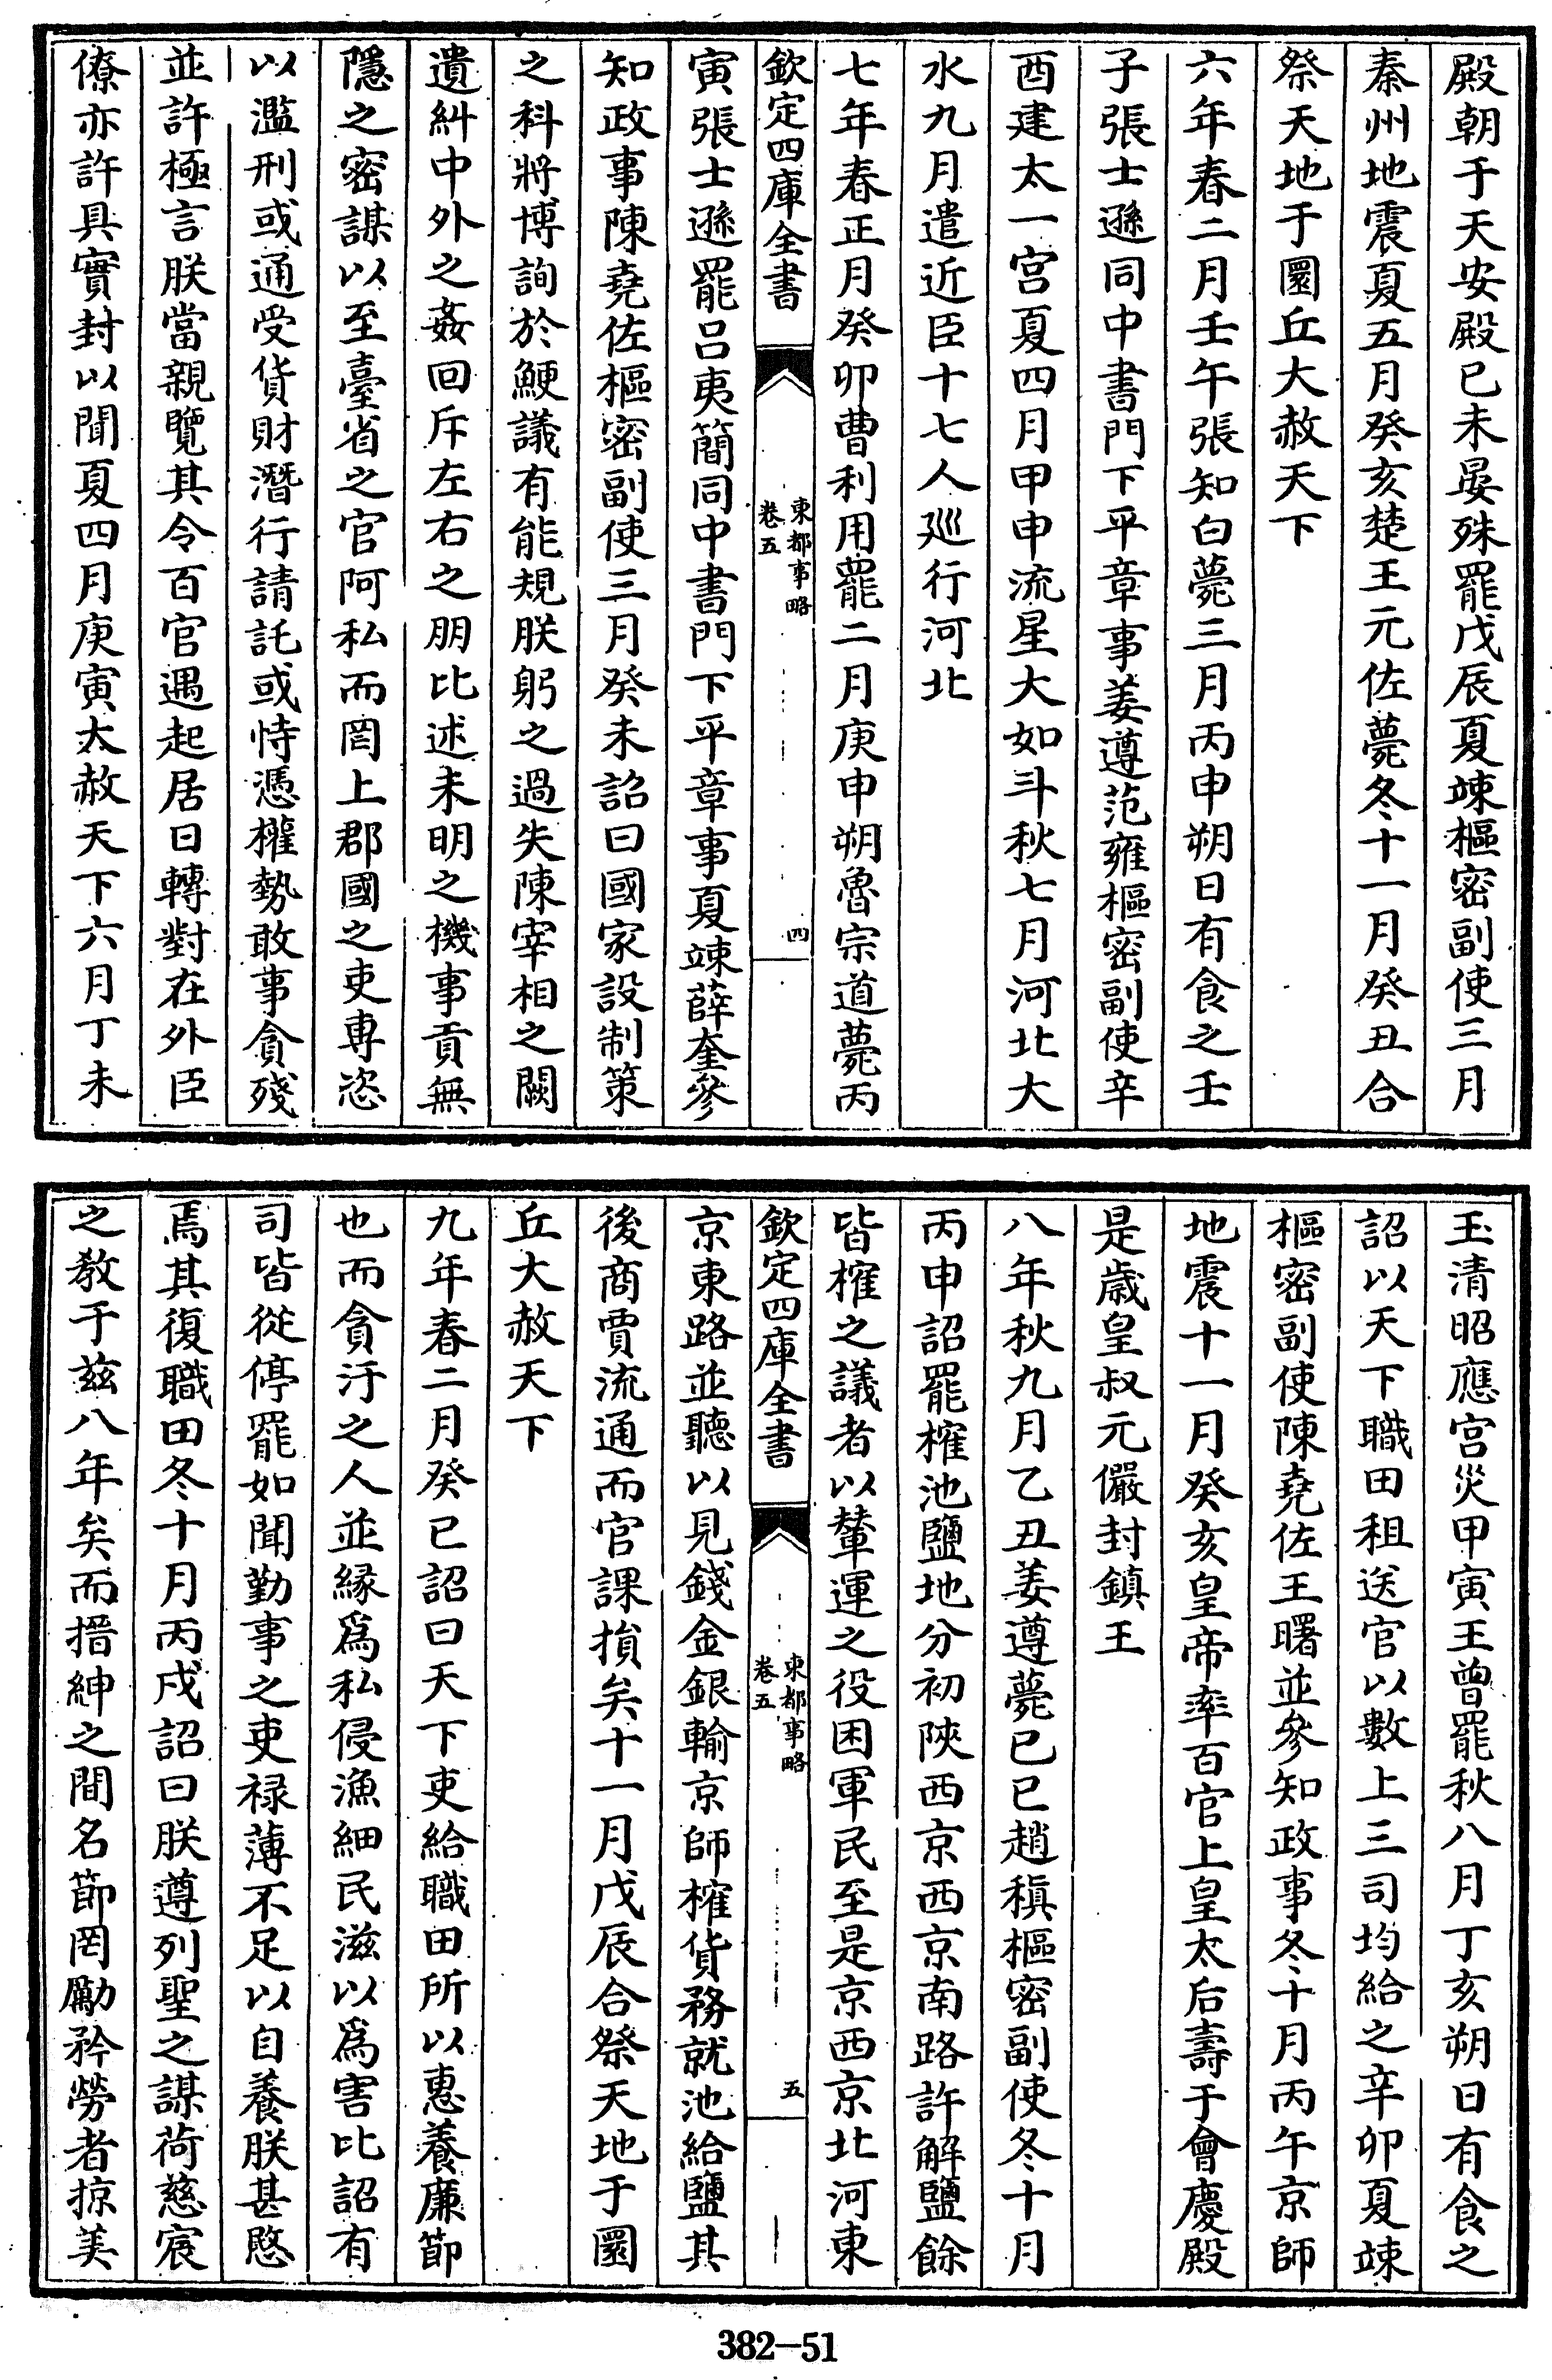 殿朝于天安殿已未晏殊罷戊辰夏竦樞密副使三月
秦州地震夏五月癸亥楚王元佐薨冬十一月癸丑合
祭天地于圜丘大赦天下
六年春二月壬午張知白薨三月丙申朔日有食之壬
子張士遜同中書門下平章事姜遵范雍樞密副使辛
酉建太一宫夏四月甲申流星大如斗秋七月河北大
水九月遣近臣十七人廵行河北
七年春正月癸卯曹利用罷二月庚申朔魯宗道薨丙
欽定四庫全書
東都事略
卷五
四
寅張士遜罷吕夷簡同中書門下平章事夏竦薛奎參
知政事陳堯佐樞密副使三月癸未詔曰國家設制策
之科將博詢於鯁議有能規朕躬之過失陳宰相之闕
遺糾中外之姦回斥左右之朋比述未明之機事貢無
隱之密謀以至臺省之官阿私而罔上郡國之吏專恣
以濫刑或通受貨財潛行請託或恃憑權勢敢事貪殘
並許極言朕當親覽其令百官遇起居日轉對在外臣
僚亦許具實封以聞夏四月庚寅大赦天下六月丁未
玉清昭應宫災甲寅王曾罷秋八月丁亥朔日有食之
詔以天下職田租送官以數上三司均給之辛卯夏竦
樞密副使陳堯佐王曙並參知政事冬十月丙午京師
地震十一月癸亥皇帝率百官上皇太后壽于會慶殿
是歳皇叔元儼封鎮王
八年秋九月乙丑姜遵薨已巳趙稹樞密副使冬十月
丙申詔罷榷池鹽地分初陜西京西京南路許解鹽餘
皆榷之議者以輦運之役困軍民至是京西京北河東
欽定四庫全書
東都事略
卷五
五
京東路並聽以見錢金銀輸京師榷貨務就池給鹽其
後商賈流通而官課損矣十一月戊辰合祭天地于圜
丘大赦天下
九年春二月癸已詔曰天下吏給職田所以惠養廉節
也而貪汙之人並縁爲私侵漁細民滋以爲害比詔有
司皆從停罷如聞勤事之吏禄薄不足以自養朕甚愍
焉其復職田冬十月丙戌詔曰朕遵列聖之謀荷慈宸
之教于兹八年矣而搢紳之間名節罔勵矜勞者掠美
382-51